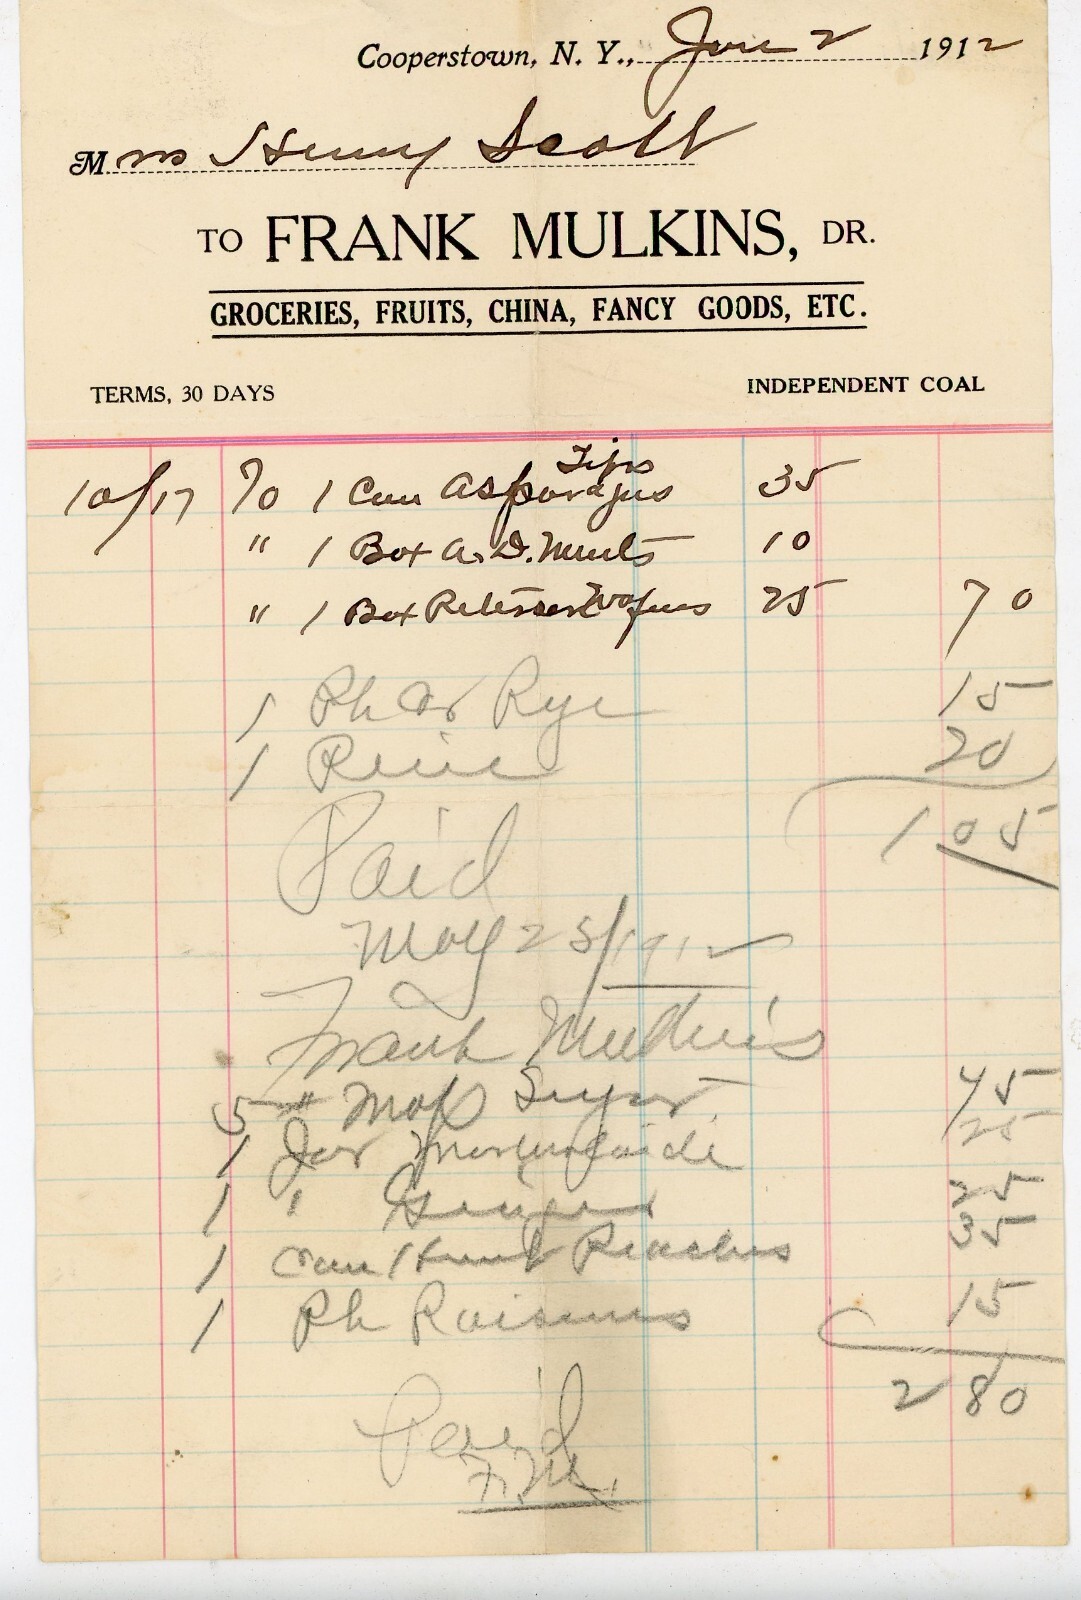 Cooperstown, N. Y., Jan 2 1912
Mrs Henry Scott
TO FRANK MULKINS, DR.
GROCERIES, FRUITS, CHINA, FANCY GOODS, ETC.
TERMS, 30 DAYS INDEPENDENT COAL
10/17 To 1 Can Asparagus Tips 35
" 1 Box A. D. Mints 10
" 1 Box Wafers 25 70
1 Pk Rye 15
1 20
1 05
Paid
May 23/1912
Frank Mulkins
5 " Map Sugar 45
1 Jar Marmalaide 25
1 " Ginger 25
1 Can Peaches 35
1 Pk Raisins 15
2 80
Paid
F. M.